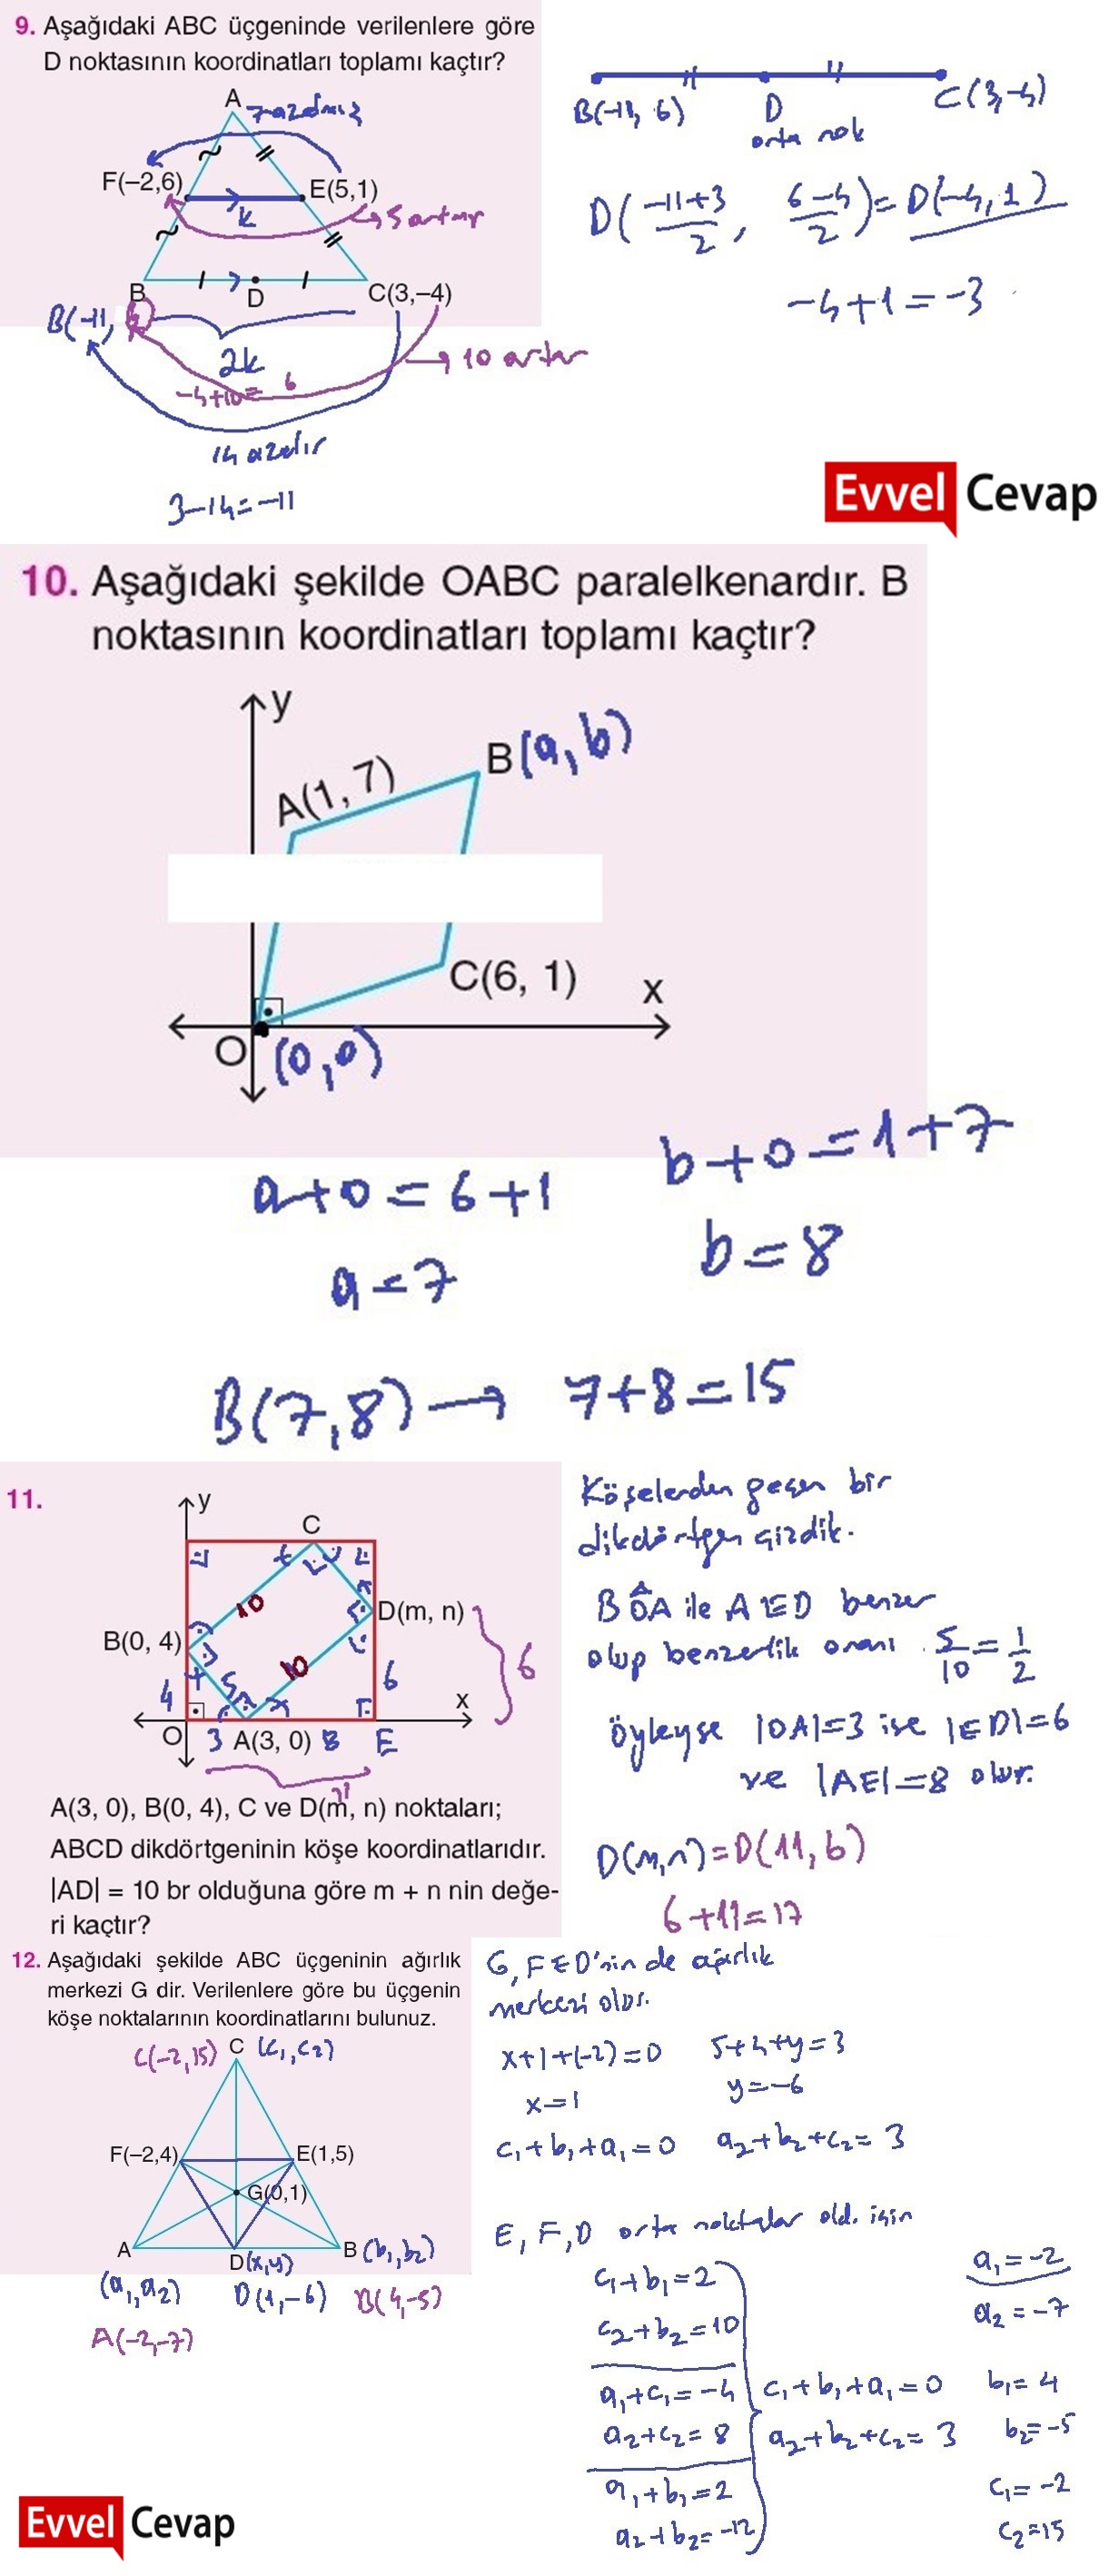 9. Aşağıdaki ABC üçgeninde verilenlere göre
D noktasının koordinatları toplamı kaçtır?
A
7 azalmış
F(–2,6)
E(5,1)
k
5 artmış
B
D
C(3,–4)
B(-11, 6)
2k
10 artar
-4+10=6
14 azalır
3-14=-11
B(-11, 6)
D
orta nok
C(3,-4)
D(-11+3/2, 6-4/2)=D(-4,1)
-4+1=-3
Evvel Cevap
10. Aşağıdaki şekilde OABC paralelkenardır. B
noktasının koordinatları toplamı kaçtır?
y
A(1, 7)
B(a,b)
C(6, 1)
x
O
(0,0)
a+0=6+1
b+0=1+7
a=7
b=8
B(7,8) → 7+8=15
11.
y
C
10
D(m, n)
B(0, 4)
6
5
10
4
6
x
O
3
A(3, 0)
8
E
11
A(3, 0), B(0, 4), C ve D(m, n) noktaları;
ABCD dikdörtgeninin köşe koordinatlarıdır.
|AD| = 10 br olduğuna göre m + n nin değe-
ri kaçtır?
Köşelerden geçen bir
dikdörtgen çizdik.
BÔA ile AED benzer
olup benzerlik oranı 5/10=1/2
Öyleyse |OA|=3 ise |ED|=6
ve |AE|=8 olur.
D(m,n)=D(11,6)
6+11=17
12. Aşağıdaki şekilde ABC üçgeninin ağırlık
merkezi G dir. Verilenlere göre bu üçgenin
köşe noktalarının koordinatlarını bulunuz.
C(-2,15)
C
(c₁,c₂)
F(–2,4)
E(1,5)
G(0,1)
A
D(x,y)
B (b₁,b₂)
(a₁,a₂)
D(1,-6)
B(4,-5)
A(-2,-7)
G, FED'nin de ağırlık
merkezi olur.
x+1+(-2)=0
5+4+y=3
x=1
y=-6
c₁+b₁+a₁=0
a₂+b₂+c₂=3
E, F, D orta noktalar old. için
c₁+b₁=2
c₂+b₂=10
a₁+c₁=-4
a₂+c₂=8
a₁+b₁=2
a₂+b₂=-12
c₁+b₁+a₁=0
a₂+b₂+c₂=3
a₁=-2
a₂=-7
b₁=4
b₂=-5
c₁=-2
c₂=15
Evvel Cevap